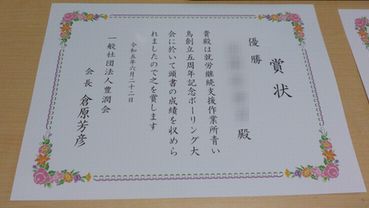 賞状
優勝
殿
貴殿は就労継続支援作業所青い
鳥創立五周年記念ボーリング大
会に於いて頭書の成績を収めら
れましたので之を賞します
令和五年六月二十二日
一般社団法人豊潤会
会長 倉原芳彦